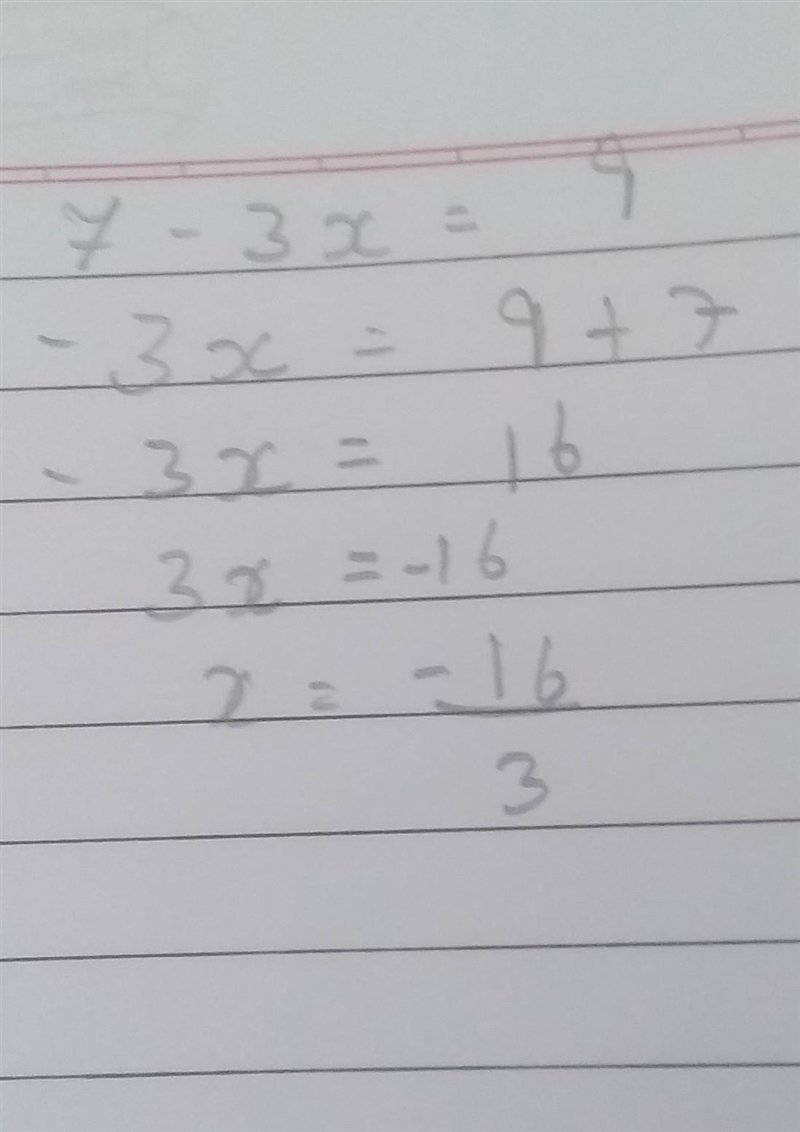 7 - 3x = 9
- 3x = 9 + 7
- 3x = 16
3x = -16
x = -16
3